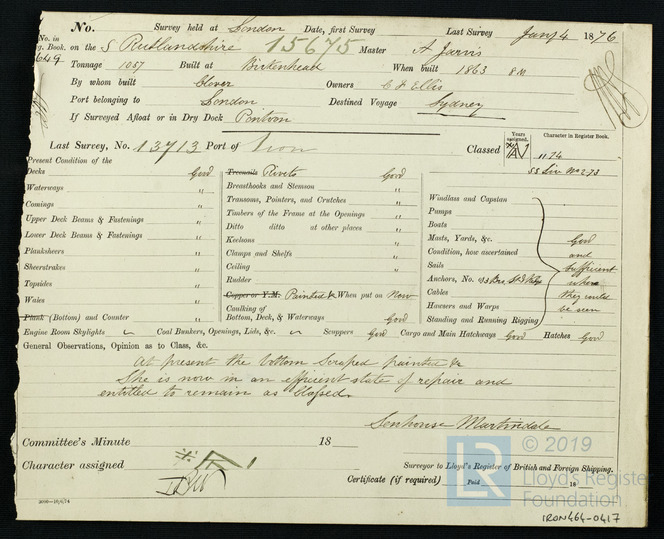 No. Survey held at London Date, first Survey Last Survey Jany 4 1876
No. in Reg. Book. 649 on the S Rutlandshire 15675 Master A Jarvis
Tonnage 1057 Built at Birkenhead When built 1863 8 M
By whom built Clover Owners C F Ellis
Port belonging to London Destined Voyage Sydney
If Surveyed Afloat or in Dry Dock Pontoon
Last Survey, No. 13713 Port of Iron Classed Years assigned. Character in Register Book.
A 11.74
SS Liv No 2 73
Present Condition of the
Decks Good
Waterways "
Comings "
Upper Deck Beams & Fastenings "
Lower Deck Beams & Fastenings "
Planksheers "
Sheerstrakes "
Topsides "
Wales "
Plank (Bottom) and Counter "
Treenails Rivets Good
Breasthooks and Stemson "
Transoms, Pointers, and Crutches "
Timbers of the Frame at the Openings "
Ditto ditto at other places "
Keelsons "
Clamps and Shelfs "
Ceiling "
Rudder
Copper or Y.M. Painted & When put on Now
Caulking of Bottom, Deck, & Waterways Good
Windlass and Capstan
Pumps
Boats
Masts, Yards, &c.
Condition, how ascertained
Sails
Anchors, No. of
Cables
Hawsers and Warps
Standing and Running Rigging
Good
and
Sufficient
where
they could
be seen
Engine Room Skylights Coal Bunkers, Openings, Lids, &c. Scuppers Good Cargo and Main Hatchways Good Hatches Good
General Observations, Opinion as to Class, &c.
At present the bottom Scraped painted &c
She is now in an efficient state of repair and
entitled to remain as Classed.
Senhouse Martindale
Committee's Minute 18
Character assigned
Surveyor to Lloyd's Register of British and Foreign Shipping.
Certificate (if required) Paid 18
3000—18/6/74
IRON464-0417
LR © 2019
Lloyd's Register
Foundation